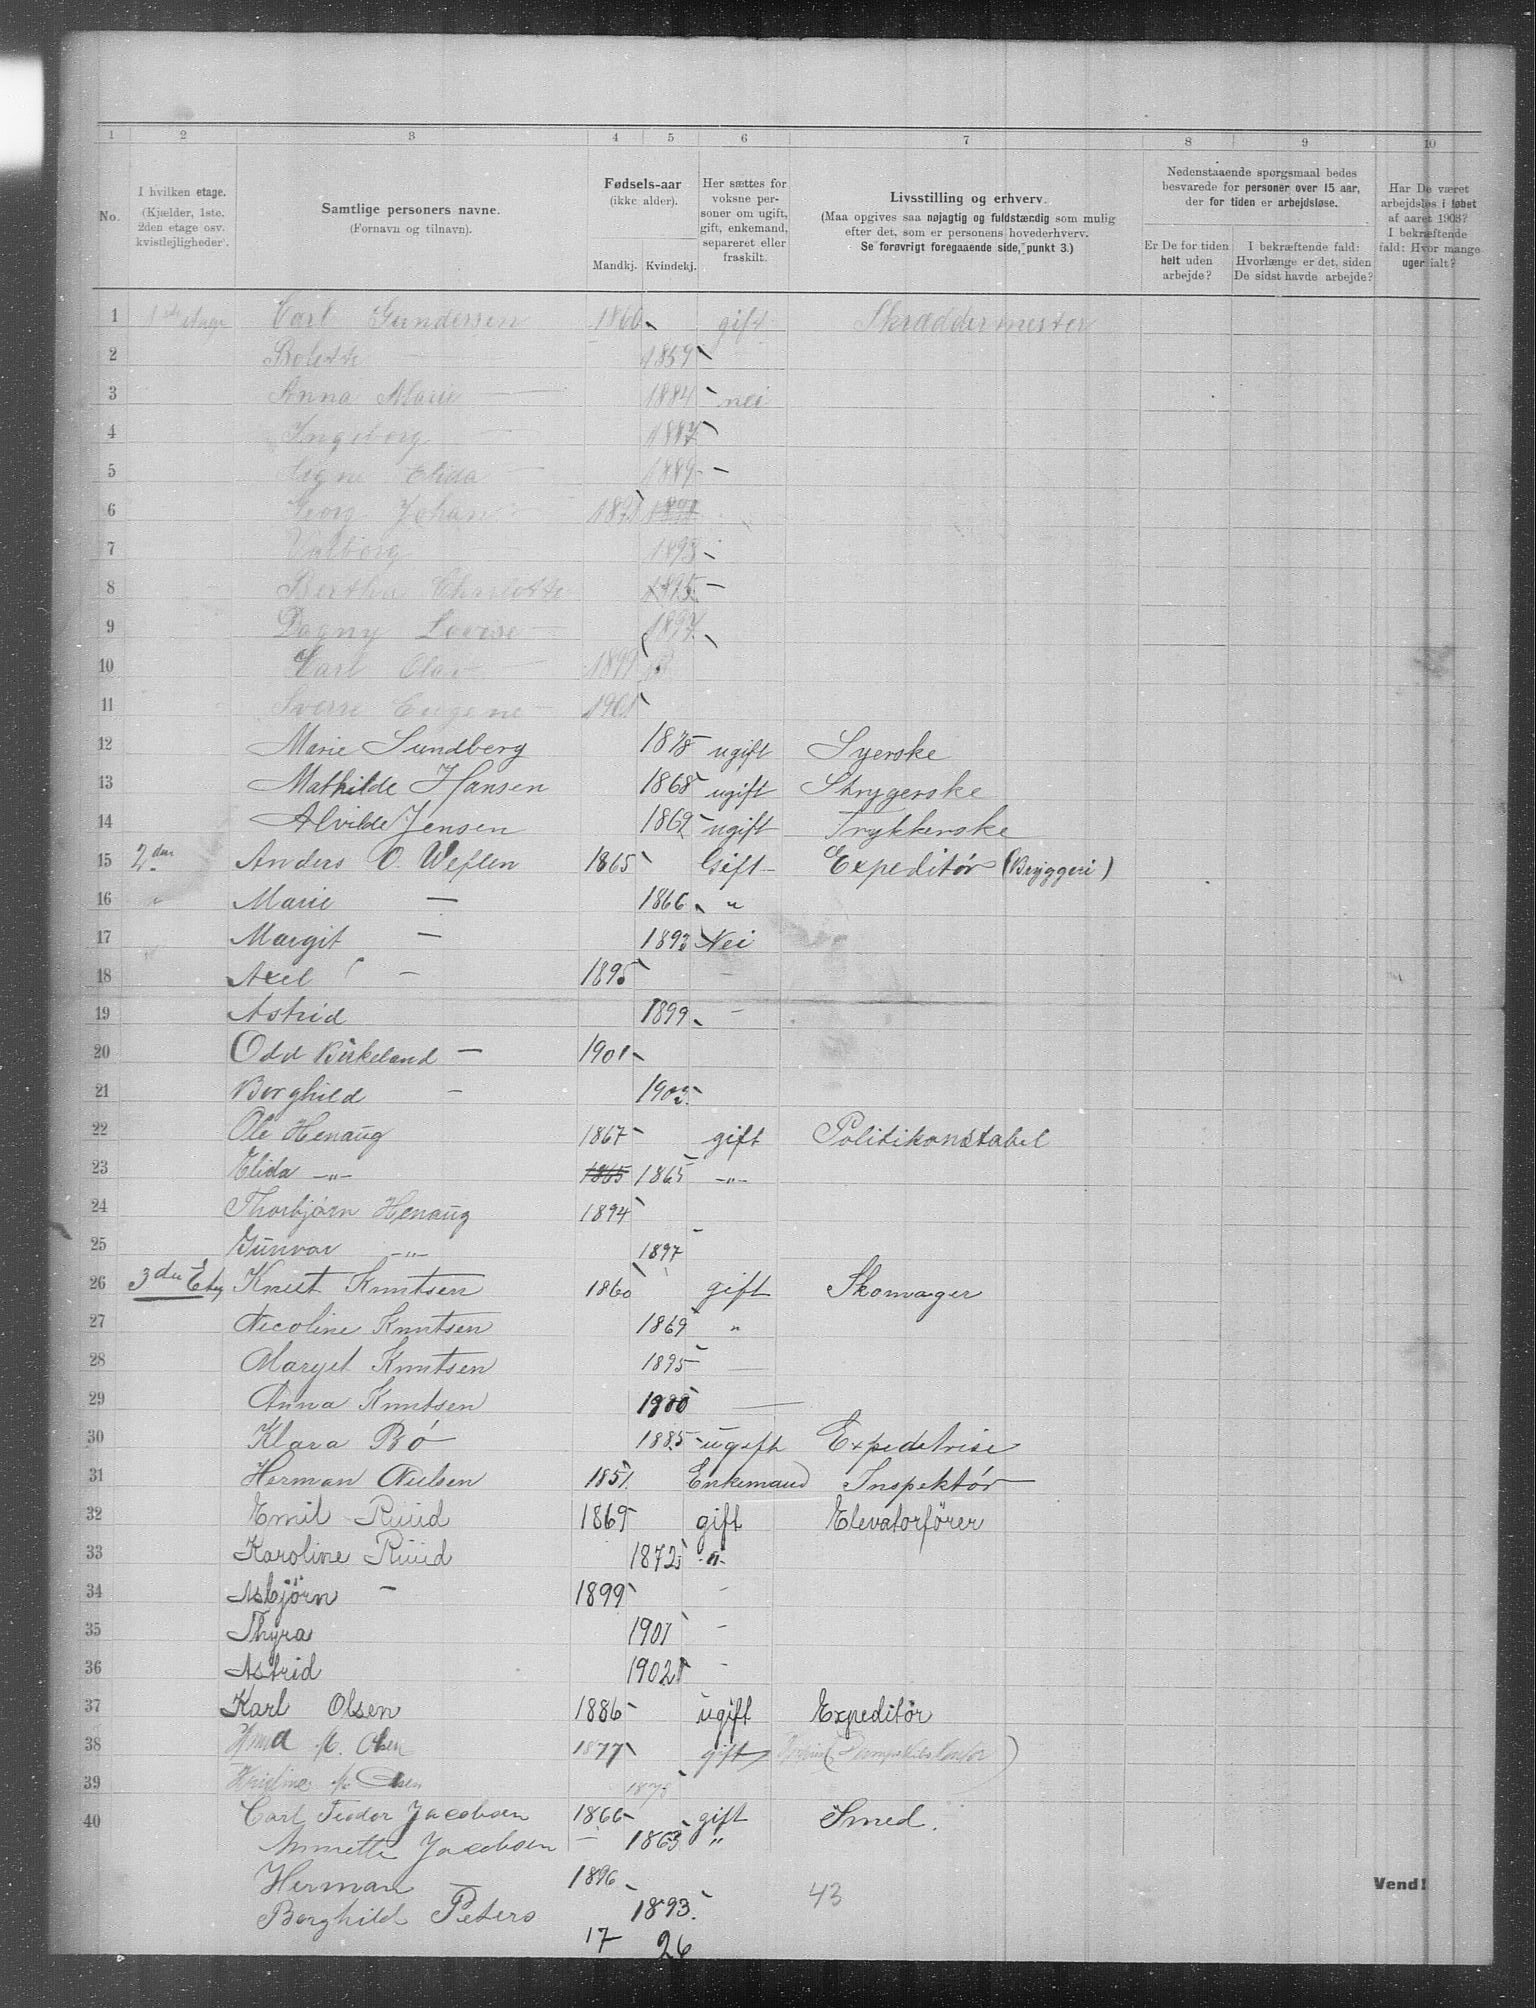 1 2 3 4 5 6 7 8 9 10
No.
I hvilken etage.
(Kjælder, 1ste,
2den etage osv.
kvistlejligheder).
Samtlige personers navne.
(Fornavn og tilnavn).
Fødsels-aar
(ikke alder).
Mandkj. Kvindekj.
Her sættes for
voksne per-
soner om ugift,
gift, enkemand,
separeret eller
fraskilt.
Livsstilling og erhverv.
(Maa opgives saa nøjagtig og fuldstændig som mulig
efter det, som er personens hovederhverv.
Se forøvrigt foregaaende side, punkt 3.)
Nedenstaaende spørgsmaal bedes
besvarede for personer over 15 aar,
der for tiden er arbejdsløse.
Er De for tiden
helt uden
arbejde?
I bekræftende fald:
Hvorlænge er det, siden
De sidst havde arbejde?
Har De været
arbejdsløs i løbet
af aaret 1903?
I bekræftende
fald: Hvor mange
uger ialt?
1 1ste etage Carl Gundersen 1860 gift Skræddermester
2 Bolette — 1859
3 Anna Marie — 1884 nei
4 Ingeborg — 1887
5 Signe Elida — 1889 —
6 Georg Johan — 1891 1891
7 Valborg — 1893
8 Bertha Charlotte 1895 —
9 Dagny Lovise — 1897
10 Karl Olaf — 1899
11 Sverre Eugene — 1901
12 Marie Sundberg 1878 ugift Syerske
13 Mathilde Hansen 1868 ugift Strygerske
14 Alvilde Jensen 1862 ugift Trykkerske
15 2den Anders O. Weflen 1865 Gift Expeditør (Bryggeri)
16 " Marie — 1866 "
17 " Margit — 1893 Nei
18 Axel — 1895 —
19 Astrid 1899 —
20 Odd Birkeland — 1901
21 Borghild — 1903
22 Ole Henaug 1867 gift Politikonstabel
23 Elida —"— 1865 1865 —"—
24 Thorbjørn Henaug 1894
25 Gunvor —"— 1897
26 3die Etg Knut Knutsen 1860 gift Skomager
27 Nicoline Knutsen 1869 "
28 Margit Knutsen 1895 —
29 Anna Knutsen 1900 —
30 Klara Bø 1885 ugift Expeditrise
31 Herman Nielsen 1851 Enkemand Inspektør
32 Emil Ruud 1869 gift Elevatorfører
33 Karoline Ruud 1872 "
34 Asbjørn — 1899 —
35 Thyra 1901 —
36 Astrid 1902 —
37 Karl Olsen 1886 ugift Expeditør
38 Olsen 1877 gift
39 Olsen 1878
40 Carl Teodor Jacobsen 1866 gift Smed.
Annette Jacobsen — 1863 "
Herman — 1896
Borghild Peters 1893
43
Vend!
17 26